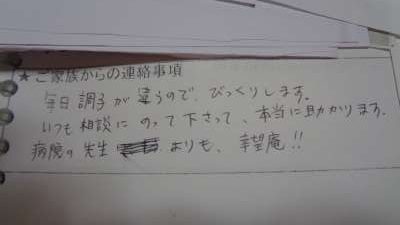 ★ご家族からの連絡事項
毎日調子が違うので、びっくりします。
いつも相談にのって下さって、本当に助かります。
病院の先生 よりも、幸望庵!!